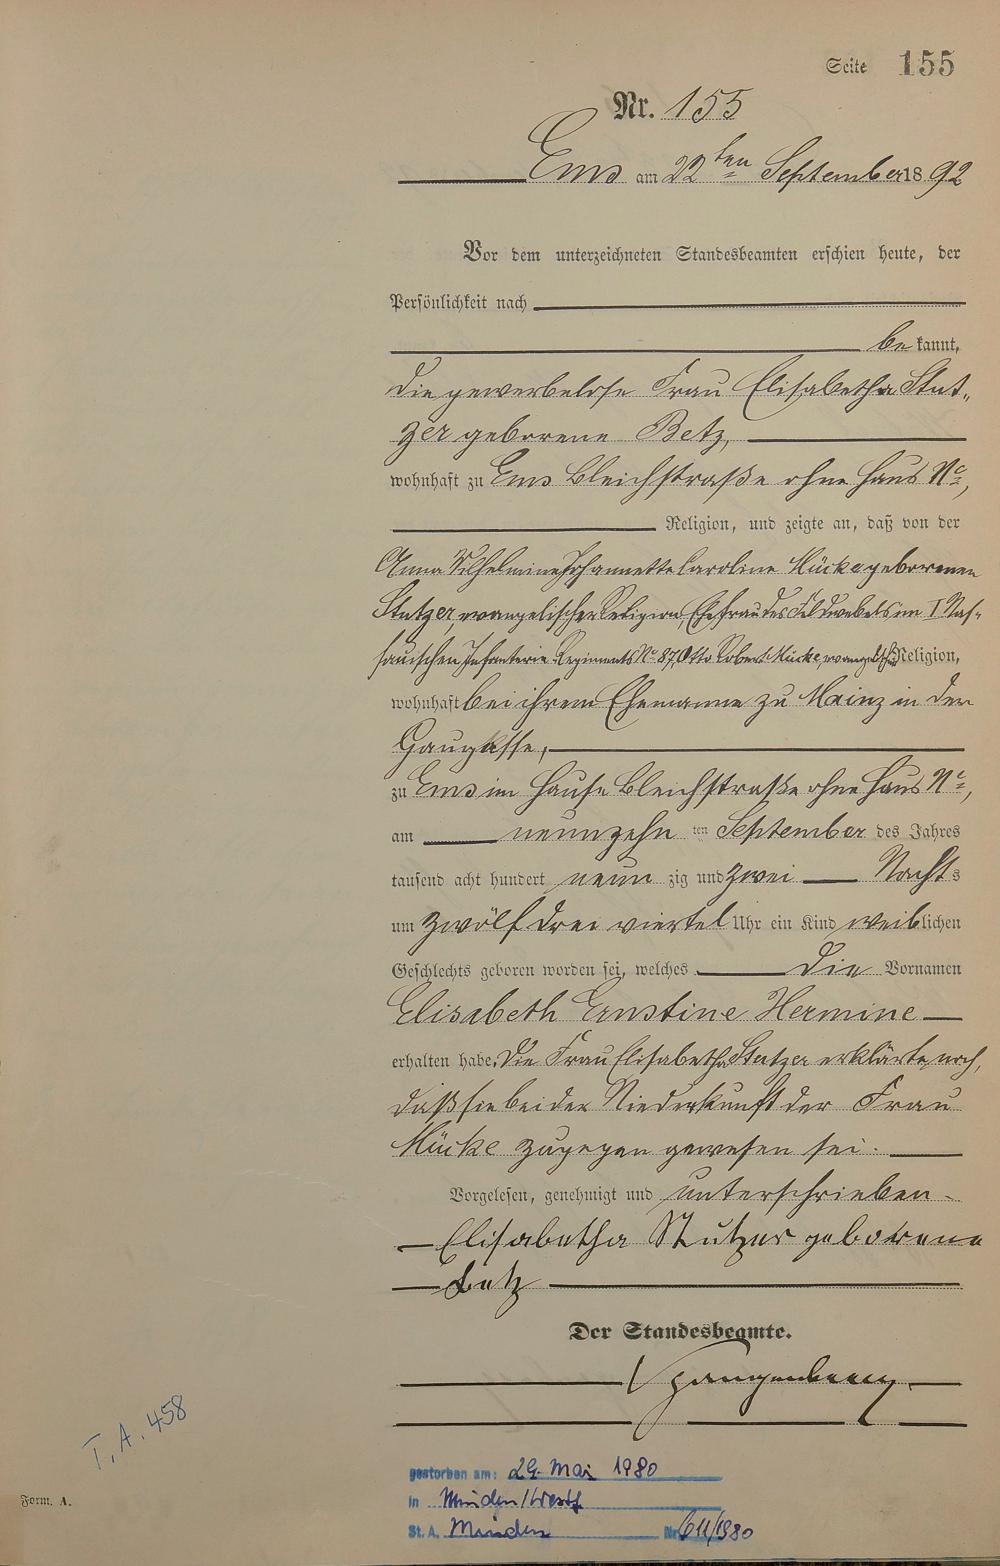 Seite 155
Nr. 155
Ems am 22ten September 1892
Vor dem unterzeichneten Standesbeamten erschien heute, der
Persönlichkeit nach
bekannt,
die gewerbelose Frau Elisabetha Stut-
zer geborene Betz,
wohnhaft zu Ems Bleichstraße ohne Haus No,
Religion, und zeigte an, daß von der
Anna Wilhelmine Johannette Caroline Mücke geborenen
Stutzer, evangelischer Religion, Ehefrau des Feldwebels im I Nas-
sauischen Infanterie Regiments No 87, Otto Robert Mücke, evangelischer Religion,
wohnhaft bei ihrem Ehemanne zu Mainz in der
Gaugasse,
zu Ems im Hause Bleichstraße ohne Haus No,
am neunzehnten September des Jahres
tausend acht hundert neunzig und zwei Nachts
um zwölf drei viertel Uhr ein Kind weiblichen
Geschlechts geboren worden sei, welches die Vornamen
Elisabeth Ernstine Hermine
erhalten habe. Die Frau Elisabetha Stutzer erklärte noch,
daß sie bei der Niederkunft der Frau
Mücke zugegen gewesen sei.
Vorgelesen, genehmigt und unterschrieben
Elisabetha Stutzer geborene
Betz
Der Standesbeamte.
Spangenberg
T. A. 458
gestorben am: 29. Mai 1980
in Minden/Westf
Form. A.
St. A. Minden Nr. 611/1980